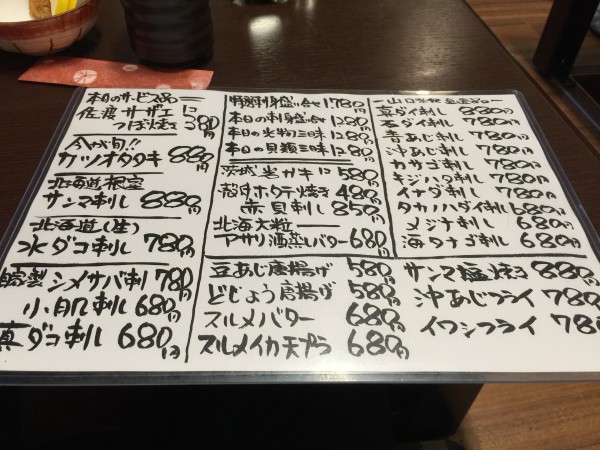 本日のサービス品
佐渡サザエ1コ
つぼ焼き380円
今が旬!!
カツオタタキ 880円
北海道根室
サンマ刺し 880円
北海道(生)
水ダコ刺し 780円
自家製シメサバ刺 780円
小肌刺し 680円
真ダコ刺し 680円
特選刺身盛り合せ 1780円
本日の刺身盛合せ 1280円
本日の光物三味 1280円
本日の貝類三味 1280円
茨城岩ガキ1コ 580円
殻付ホタテ焼き 480円
赤貝刺し 850円
北海大粒
アサリ酒蒸しバター 680円
豆あじ唐揚げ 580円
どじょう唐揚げ 580円
スルメバター 680円
スルメイカ天プラ 680円
真ダイ刺し 880円
石ダイ刺し 780円
青あじ刺し 780円
沖あじ刺し 780円
カサゴ刺し 780円
キジハタ刺し 780円
イサダ刺し 780円
タカノハダイ刺し 680円
メジナ刺し 680円
海タナゴ刺し 680円
サンマ塩焼き 880円
沖あじフライ 780円
イワシフライ 780円